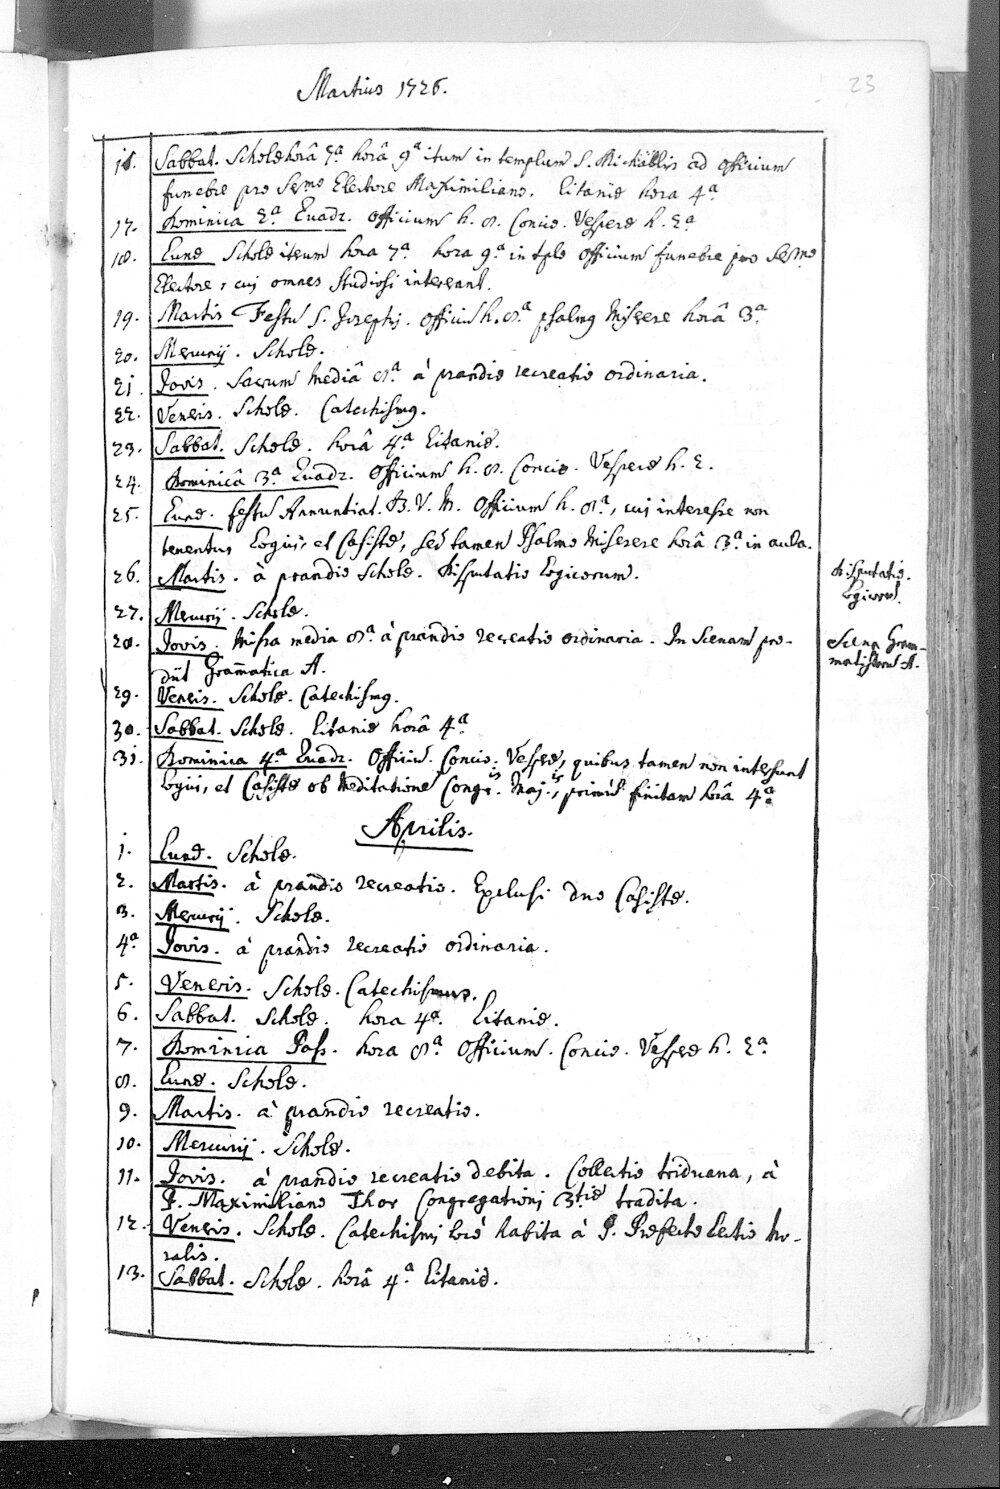 Martius 1726.
23
16. Sabbat. Scholae horâ 7ª horâ 9ª itum in templum S. Michaëlis ad officium
funebre pro Sermo Electore Maximiliano. Litaniae hora 4ª
17. Dominica 2ª Quadr. Officium h. 8. Concio. Vesperae h. 2ª
18. Lunae Scholae iterum hora 7ª hora 9ª in tplo officium funebre pro Sermo
Electore, cui omnes studiosi intererant.
19. Martis Festum S. Josephi. Officium h. 8.ª psalmus Miserere horâ 3ª.
20. Mercurij. Scholae.
21. Jovis. Sacrum mediâ 8.ª à prandio recreatio ordinaria.
22. Veneris. Scholae. Catechismus.
23. Sabbat. Scholae. horâ 4.ª Litaniae.
24. Dominicâ 3.ª Quadr. Officium h. 8. Concio. Vesperae h. 2.
25. Lunae. festum Annuntiat. B. V. M. Officium h. 8ª, cui interesse non
tenentur Logici, et Casistae, sed tamen Psalmo Miserere horâ 3ª in aula.
26. Martis. à prandio Scholae. Disputatio Logicorum.
Disputatio.
Logicorum.
27. Mercurij. Scholae.
28. Jovis. Missa media 8ª à prandio recreatio ordinaria. In Scenam pro-
diit Gram̄atica A.
Scena Gram-
matistarum A.
29. Veneris. Scholae. Catechismus.
30. Sabbat. Scholae. Litaniae horâ 4ª
31. Dominica 4ª Quadr. Officium. Concio. Vesperae, quibus tamen non intersunt
Logici, et Casistae ob Meditationem Congr.is Maj.is, primum finitam horâ 4ª
Aprilis.
1. Lunae. Scholae.
2. Martis. à prandio recreatio. Exclusi duo Casistae.
3. Mercurij. Scholae.
4ª Jovis. à prandio recreatio ordinaria.
5. Veneris. Scholae. Catechismus.
6. Sabbat. Scholae. hora 4ª. Litaniae.
7. Dominica Pass. hora 8ª officium. Concio. Vesperae h. 2.ª
8. Lunae. Scholae.
9. Martis. à prandio recreatio.
10. Mercurij. Scholae.
11. Jovis. à prandio recreatio debita. Collectio triduana, à
P. Maximiliano Thor Congregationi 3tiae tradita.
12. Veneris. Scholae. Catechismi loco habita à P. Praefecto Lectio mo-
ralis.
13. Sabbat. Scholae. horâ 4.ª Litaniae.